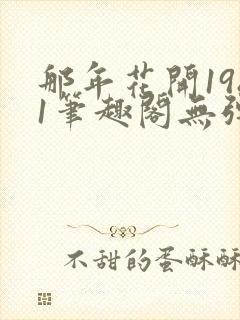 那年花開19
1筆趣閣無
不甜的蛋酥酥